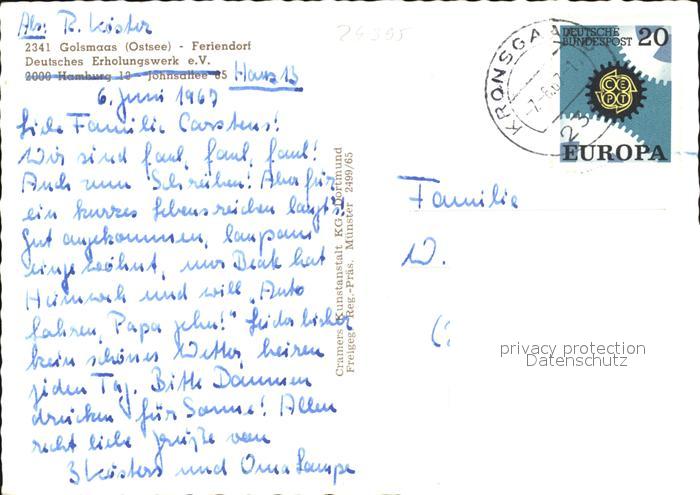 Abs: R. Köster
2341 Golsmaas (Ostsee) - Feriendorf
Deutsches Erholungswerk e.V.
2000 Hamburg 13 - Johnsallee 65
Haus 13
6. Juni 1967
Liebe Familie Carstens!
Wir sind faul, faul, faul!
Auch zum Schreiben! Aber für
ein kurzes Lebenszeichen langt's:
Gut angekommen, langsam
eingewöhnt, nur Beate hat
Heimweh und will „Auto
fahren, Papa gehn!" Leider bisher
kein schönes Wetter, heizen
jeden Tag. Bitte Daumen
drücken für Sonne! Allen
recht liebe Grüße von
3 Kösters und Oma Lampe
Cramers Kunstanstalt KG. Dortmund
Freigeg. Reg.-Präs. Münster 2499/65
KRONSGAARD
23
DEUTSCHE
BUNDESPOST
20
CEPT
EUROPA
Familie
W.
privacy protection
Datenschutz